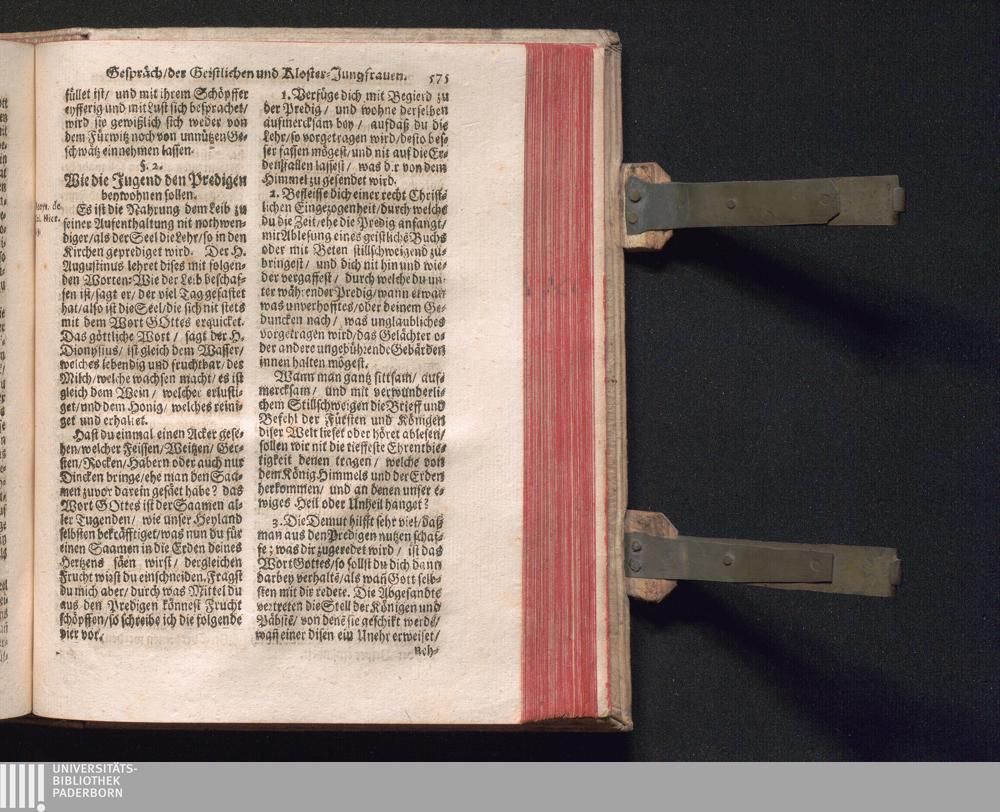 Gespräch/der Geistlichen und Kloster-Jungfrauen. 575
füllet ist/ und mit ihrem Schöpffer
eyfferig und mit Lust sich besprachet/
wird sie gewißlich sich weder von
dem Fürwitz noch von unnützen Ge-
schwätz einnehmen lassen.
§. 2.
Wie die Jugend den Predigen
beywohnen sollen.
Es ist die Nahrung dem Leib zu
seiner Aufenthaltung nit nothwen-
diger/als der Seel die Lehr/so in den
Kirchen geprediget wird. Der H.
Augustinus lehret dises mit folgen-
den Worten: Wie der Leib beschaf-
fen ist/sagt er/ der viel Tag gefastet
hat/also ist die Seel/die sich nit stets
mit dem Wort GOttes erquicket.
Das göttliche Wort / sagt der H.
Dionysius/ ist gleich dem Wasser/
welches lebendig und fruchtbar/der
Milch/welche wachsen macht/ es ist
gleich dem Wein / welcher erlusti-
get/und dem Honig/ welches reini-
get und erhaltet.
Hast du einmal einen Acker gese-
hen/welcher Feissen/ Weitzen/ Ger-
sten/Rocken/Habern oder auch nur
Dincken bringe/ehe man den Saa-
men zuvor darein gesäet habe? das
Wort GOttes ist der Saamen al-
ler Tugenden/ wie unser Heyland
selbsten bekräfftiget/was nun du für
einen Saamen in die Erden deines
Hertzens säen wirst/ dergleichen
Frucht wirst du einschneiden. Fragst
du mich aber/ durch was Mittel du
aus den Predigen könnest Frucht
schöpffen/so schreibe ich die folgende
vier vor.
1. Verfüge dich mit Begierd zu
der Predig/ und wohne derselben
aufmercksam bey/ aufdaß du die
Lehr/so vorgetragen wird/desto bes-
ser fassen mögest/und nit auf die Er-
den fallen lassest/ was dir von dem
Himmel zu gesendet wird.
2. Befleisse dich einer recht Christ-
lichen Eingezogenheit/durch welche
du die Zeit/ehe die Predig anfangt/
mit Ablesung eines geistlichē Buchs
oder mit Beten stillschweigend zu-
bringest/ und dich nit hin und wie-
der vergaffest/ durch welche du un-
ter währender Predig/wann etwan
was unverhofftes/oder deinem Ge-
duncken nach/ was unglaubliches
vorgetragen wird/das Gelächter o-
der andere ungebührende Gebärden
innen halten mögest.
Wann man gantz sittsam/ auf-
mercksam/ und mit verwunderli-
chem Stillschweigen die Brieff und
Befehl der Fürsten und Königen
diser Welt lieset oder höret ablesen/
sollen wir nit die tieffeste Ehrentbie-
tigkeit denen tragen/ welche von
dem König Himmels und der Erden
herkommen/ und an denen unser e-
wiges Heil oder Unheil hanget?
3. Die Demut hilfft sehr viel/daß
man aus den Predigen nutzen schaf-
fe; was dir zugeredet wird/ ist das
Wort Gottes/so sollst du dich dann
darbey verhaltē/als wañ Gott selb-
sten mit dir redete. Die Abgesandte
vertreten die Stell der Königen und
Päbstē/ von denē sie geschikt werdē/
wañ einer disen ein Unehr erweiset/
neh-
UNIVERSITÄTS-
BIBLIOTHEK
PADERBORN